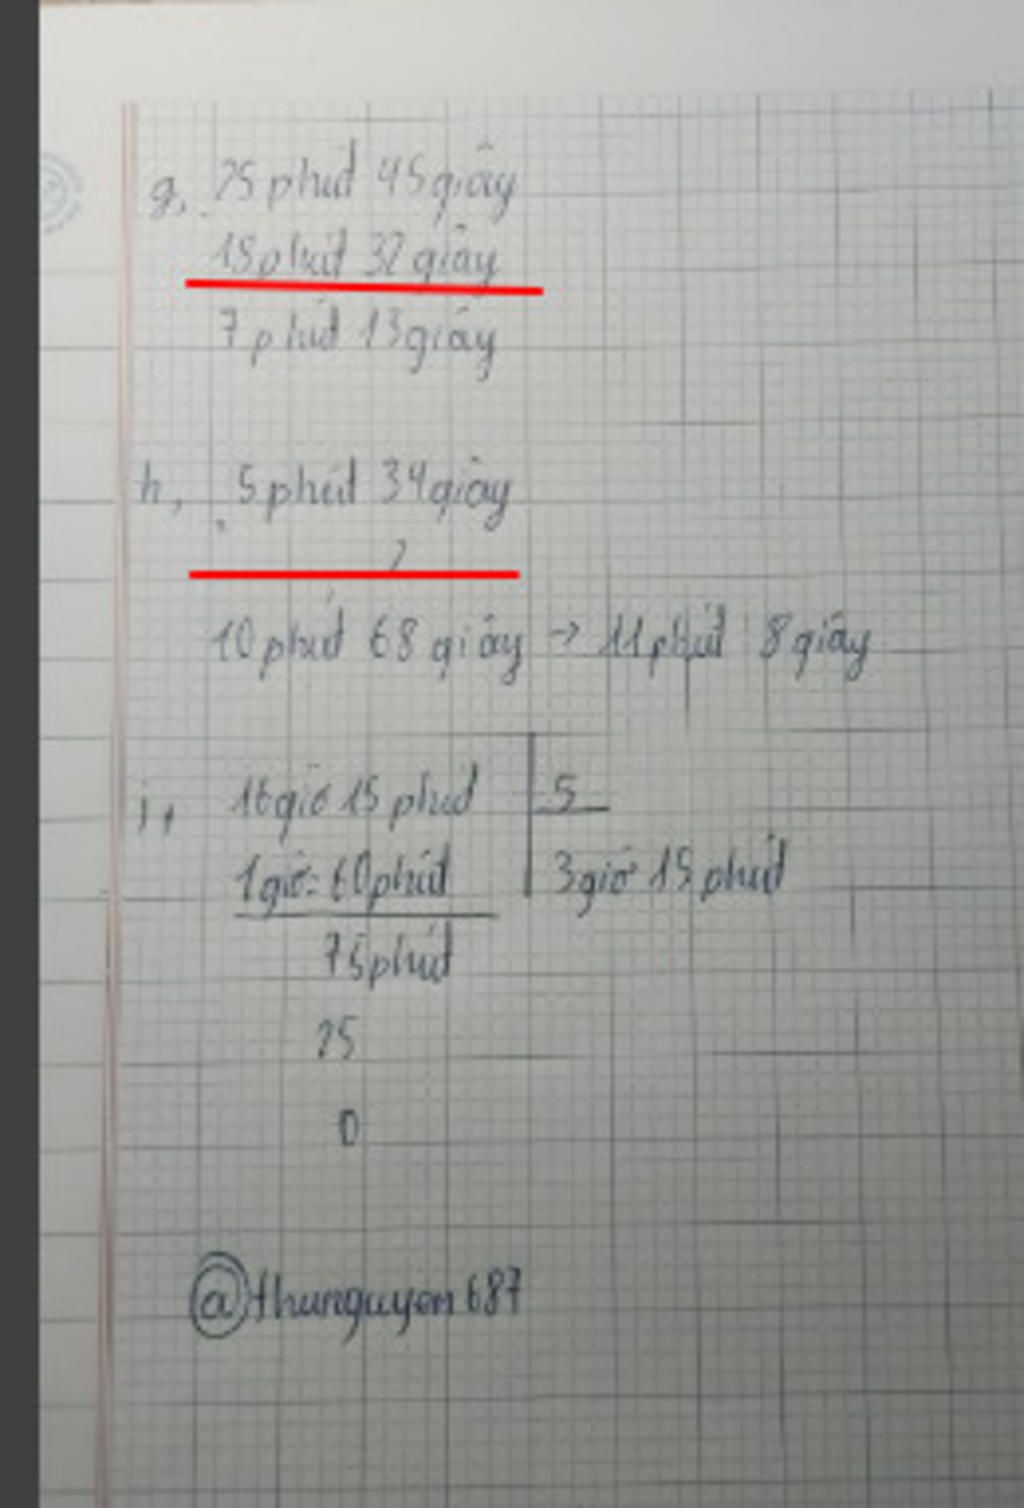 g, 25 phút 45 giây
18 phút 32 giây
7 phút 13 giây
h, 5 phút 34 giây
2
10 phút 68 giây → 11 phút 8 giây
i, 16 giờ 15 phút 5
1 giờ = 60 phút 3 giờ 15 phút
75 phút
25
0
@thunguyen687